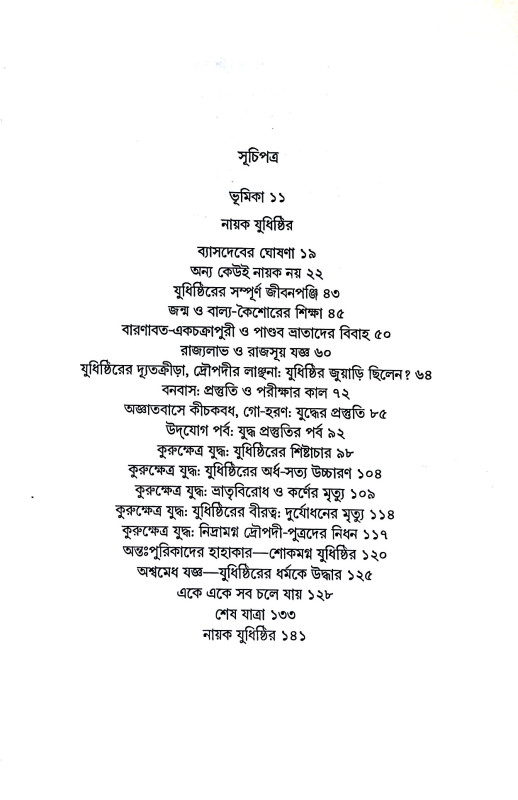 সূচিপত্র
ভূমিকা ১১
নায়ক যুধিষ্ঠির
ব্যাসদেবের ঘোষণা ১৯
অন্য কেউই নায়ক নয় ২২
যুধিষ্ঠিরের সম্পূর্ণ জীবনপঞ্জি ৪৩
জন্ম ও বাল্য-কৈশোরের শিক্ষা ৪৫
বারণাবত-একচক্রাপুরী ও পাণ্ডব ভ্রাতাদের বিবাহ ৫০
রাজ্যলাভ ও রাজসূয় যজ্ঞ ৬০
যুধিষ্ঠিরের দ্যূতক্রীড়া, দ্রৌপদীর লাঞ্ছনা: যুধিষ্ঠির জুয়াড়ি ছিলেন? ৬৪
বনবাস: প্রস্তুতি ও পরীক্ষার কাল ৭২
অজ্ঞাতবাসে কীচকবধ, গো-হরণ: যুদ্ধের প্রস্তুতি ৮৫
উদ্‌যোগ পর্ব: যুদ্ধ প্রস্তুতির পর্ব ৯২
কুরুক্ষেত্র যুদ্ধ: যুধিষ্ঠিরের শিষ্টাচার ৯৮
কুরুক্ষেত্র যুদ্ধ: যুধিষ্ঠিরের অর্ধ-সত্য উচ্চারণ ১০৪
কুরুক্ষেত্র যুদ্ধ: ভ্রাতৃবিরোধ ও কর্ণের মৃত্যু ১০৯
কুরুক্ষেত্র যুদ্ধ: যুধিষ্ঠিরের বীরত্ব: দুর্যোধনের মৃত্যু ১১৪
কুরুক্ষেত্র যুদ্ধ: নিদ্রামগ্ন দ্রৌপদী-পুত্রদের নিধন ১১৭
অন্তঃপুরিকাদের হাহাকার—শোকমগ্ন যুধিষ্ঠির ১২০
অশ্বমেধ যজ্ঞ—যুধিষ্ঠিরের ধর্মকে উদ্ধার ১২৫
একে একে সব চলে যায় ১২৮
শেষ যাত্রা ১৩৩
নায়ক যুধিষ্ঠির ১৪১